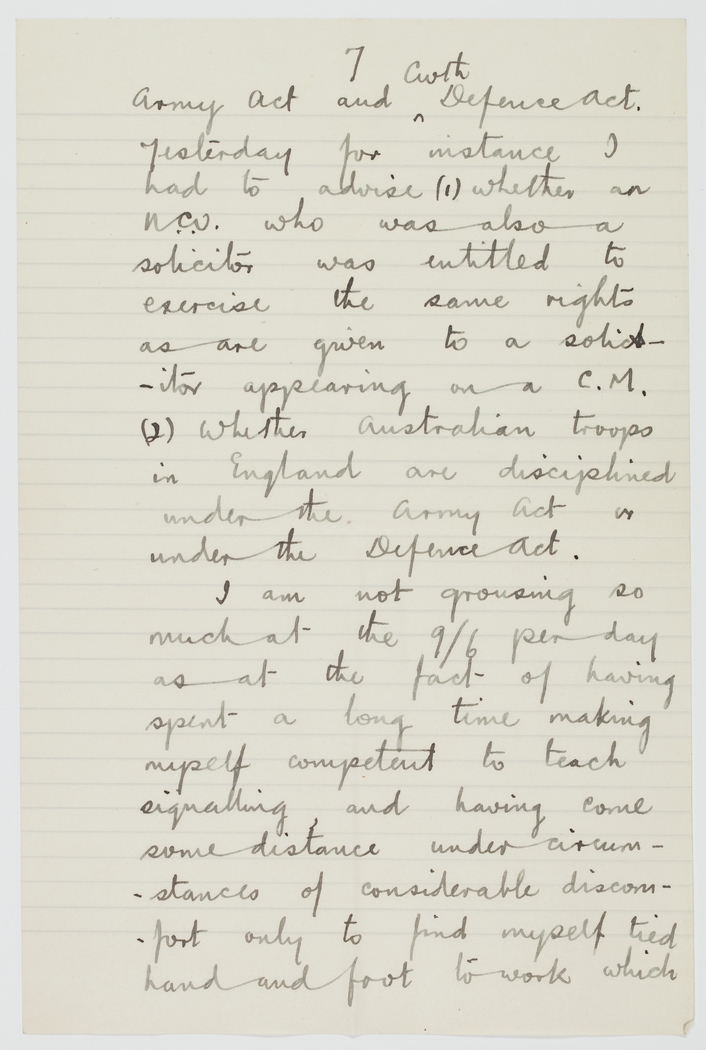 7
Cwth
Army Act and ^ Defence Act.
Yesterday for instance I
had to advise (1) whether an
N.C.O. who was also a
solicitor was entitled to
exercise the same rights
as are given to a solic-
-itor appearing on a C.M.
(2) Whether Australian troops
in England are disciplined
under the. Army Act or
under the Defence Act.
I am not grousing so
much at the 9/6 per day
as at the fact of having
spent a long time making
myself competent to teach
signalling, and having come
some distance under circum-
-stances of considerable discom-
-fort only to find myself tied
hand and foot to work which